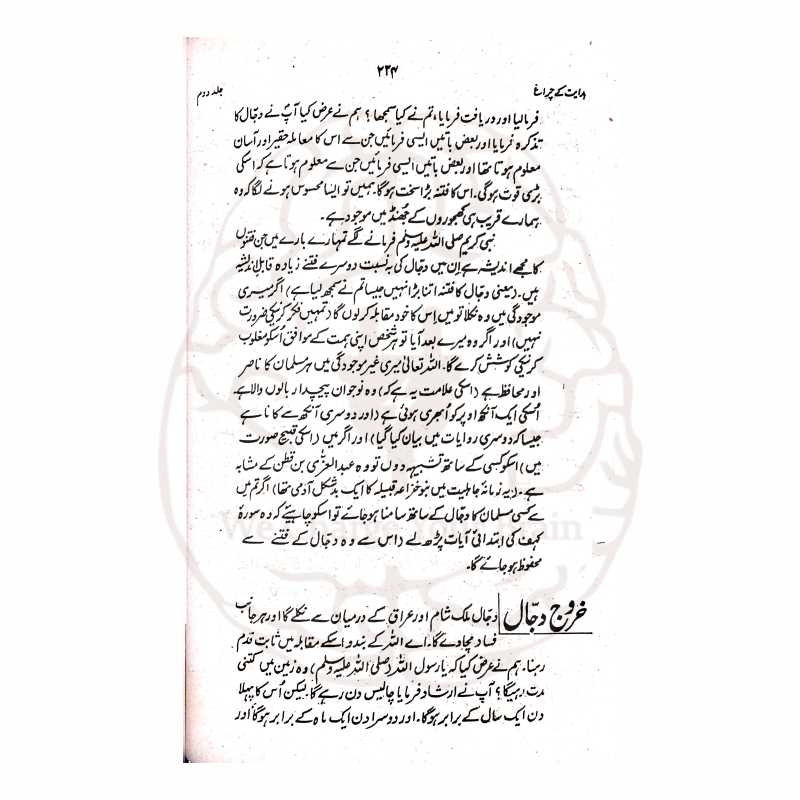 ۲۳۴
ہدایت کے چراغ
جلد دوم
فرمالیا اور دریافت فرمایا، تم نے کیا سمجھا؟ ہم نے عرض کیا آپ نے دجّال کا
تذکرہ فرمایا اور بعض باتیں ایسی فرمائیں جن سے اس کا معاملہ حقیر اور آسان
معلوم ہوتا تھا اور بعض باتیں ایسی فرمائیں جن سے معلوم ہوتا ہے کہ اسکی
بڑی قوت ہوگی۔ اس کا فتنہ بڑا سخت ہوگا۔ ہمیں تو ایسا محسوس ہونے لگا کہ وہ
ہمارے قریب ہی کھجوروں کے جُھنڈ میں موجود ہے۔
نبی کریم صلی اللہ علیہ وسلم فرمانے لگے تمہارے بارے میں جن فتنوں
کا مجھے اندیشہ ہے اِن میں دجال کی بہ نسبت دوسرے فتنے زیادہ قابلِ اندیشہ
ہیں۔ (یعنی دجال کا فتنہ اتنا بڑا نہیں جیسا تم نے سمجھ لیا ہے) اگر میری
موجودگی میں وہ نکلا تو میں اِس کا خود مقابلہ کرلوں گا (تمہیں فکر کرنیکی ضرورت
نہیں) اور اگر وہ میرے بعد آیا تو ہر شخص اپنی ہمت کے موافق اُسکو مغلوب
کرنیکی کوشش کرے گا۔ اللہ تعالیٰ میری غیر موجودگی میں ہر مسلمان کا ناصر
اور محافظ ہے (اسکی علامت یہ ہے کہ) وہ نوجوان پیچدار بالوں والا ہے۔
اُسکی ایک آنکھ اوپر کو اُبھری ہوئی ہے (اور دوسری آنکھ سے کانا ہے
جیسا کہ دوسری روایات میں بیان کیا گیا) اور اگر میں (اسکی قبیح صورت
میں) اسکو کسی کے ساتھ تشبیہہ دوں تو وہ عبدالعزّٰی بن قطن کے مشابہ
ہے۔ (یہ زمانۂ جاہلیت میں بنو خزاعہ قبیلہ کا ایک بدشکل آدمی تھا) اگر تم میں
سے کسی مسلمان کا دجال کے ساتھ سامنا ہوجائے تو اسکو چاہیئے کہ وہ سورۂ
کہف کی ابتدائی آیات پڑھ لے (اس سے وہ دجال کے فتنے سے
محفوظ ہوجائے گا۔
خروجِ دجّال
دجّال ملک شام اور عراق کے درمیان سے نکلے گا اور ہر جانب
فساد مچادے گا۔ اے اللہ کے بندو اسکے مقابلہ میں ثابت قدم
رہنا۔ ہم نے عرض کیا کہ یا رسول اللہ (صلی اللہ علیہ وسلم) وہ زمین میں کتنی
مدت رہیگا؟ آپ نے ارشاد فرمایا چالیس دن رہے گا۔ لیکن اُس کا پہلا
دن ایک سال کے برابر ہوگا۔ اور دوسرا دن ایک ماہ کے برابر ہوگا اور